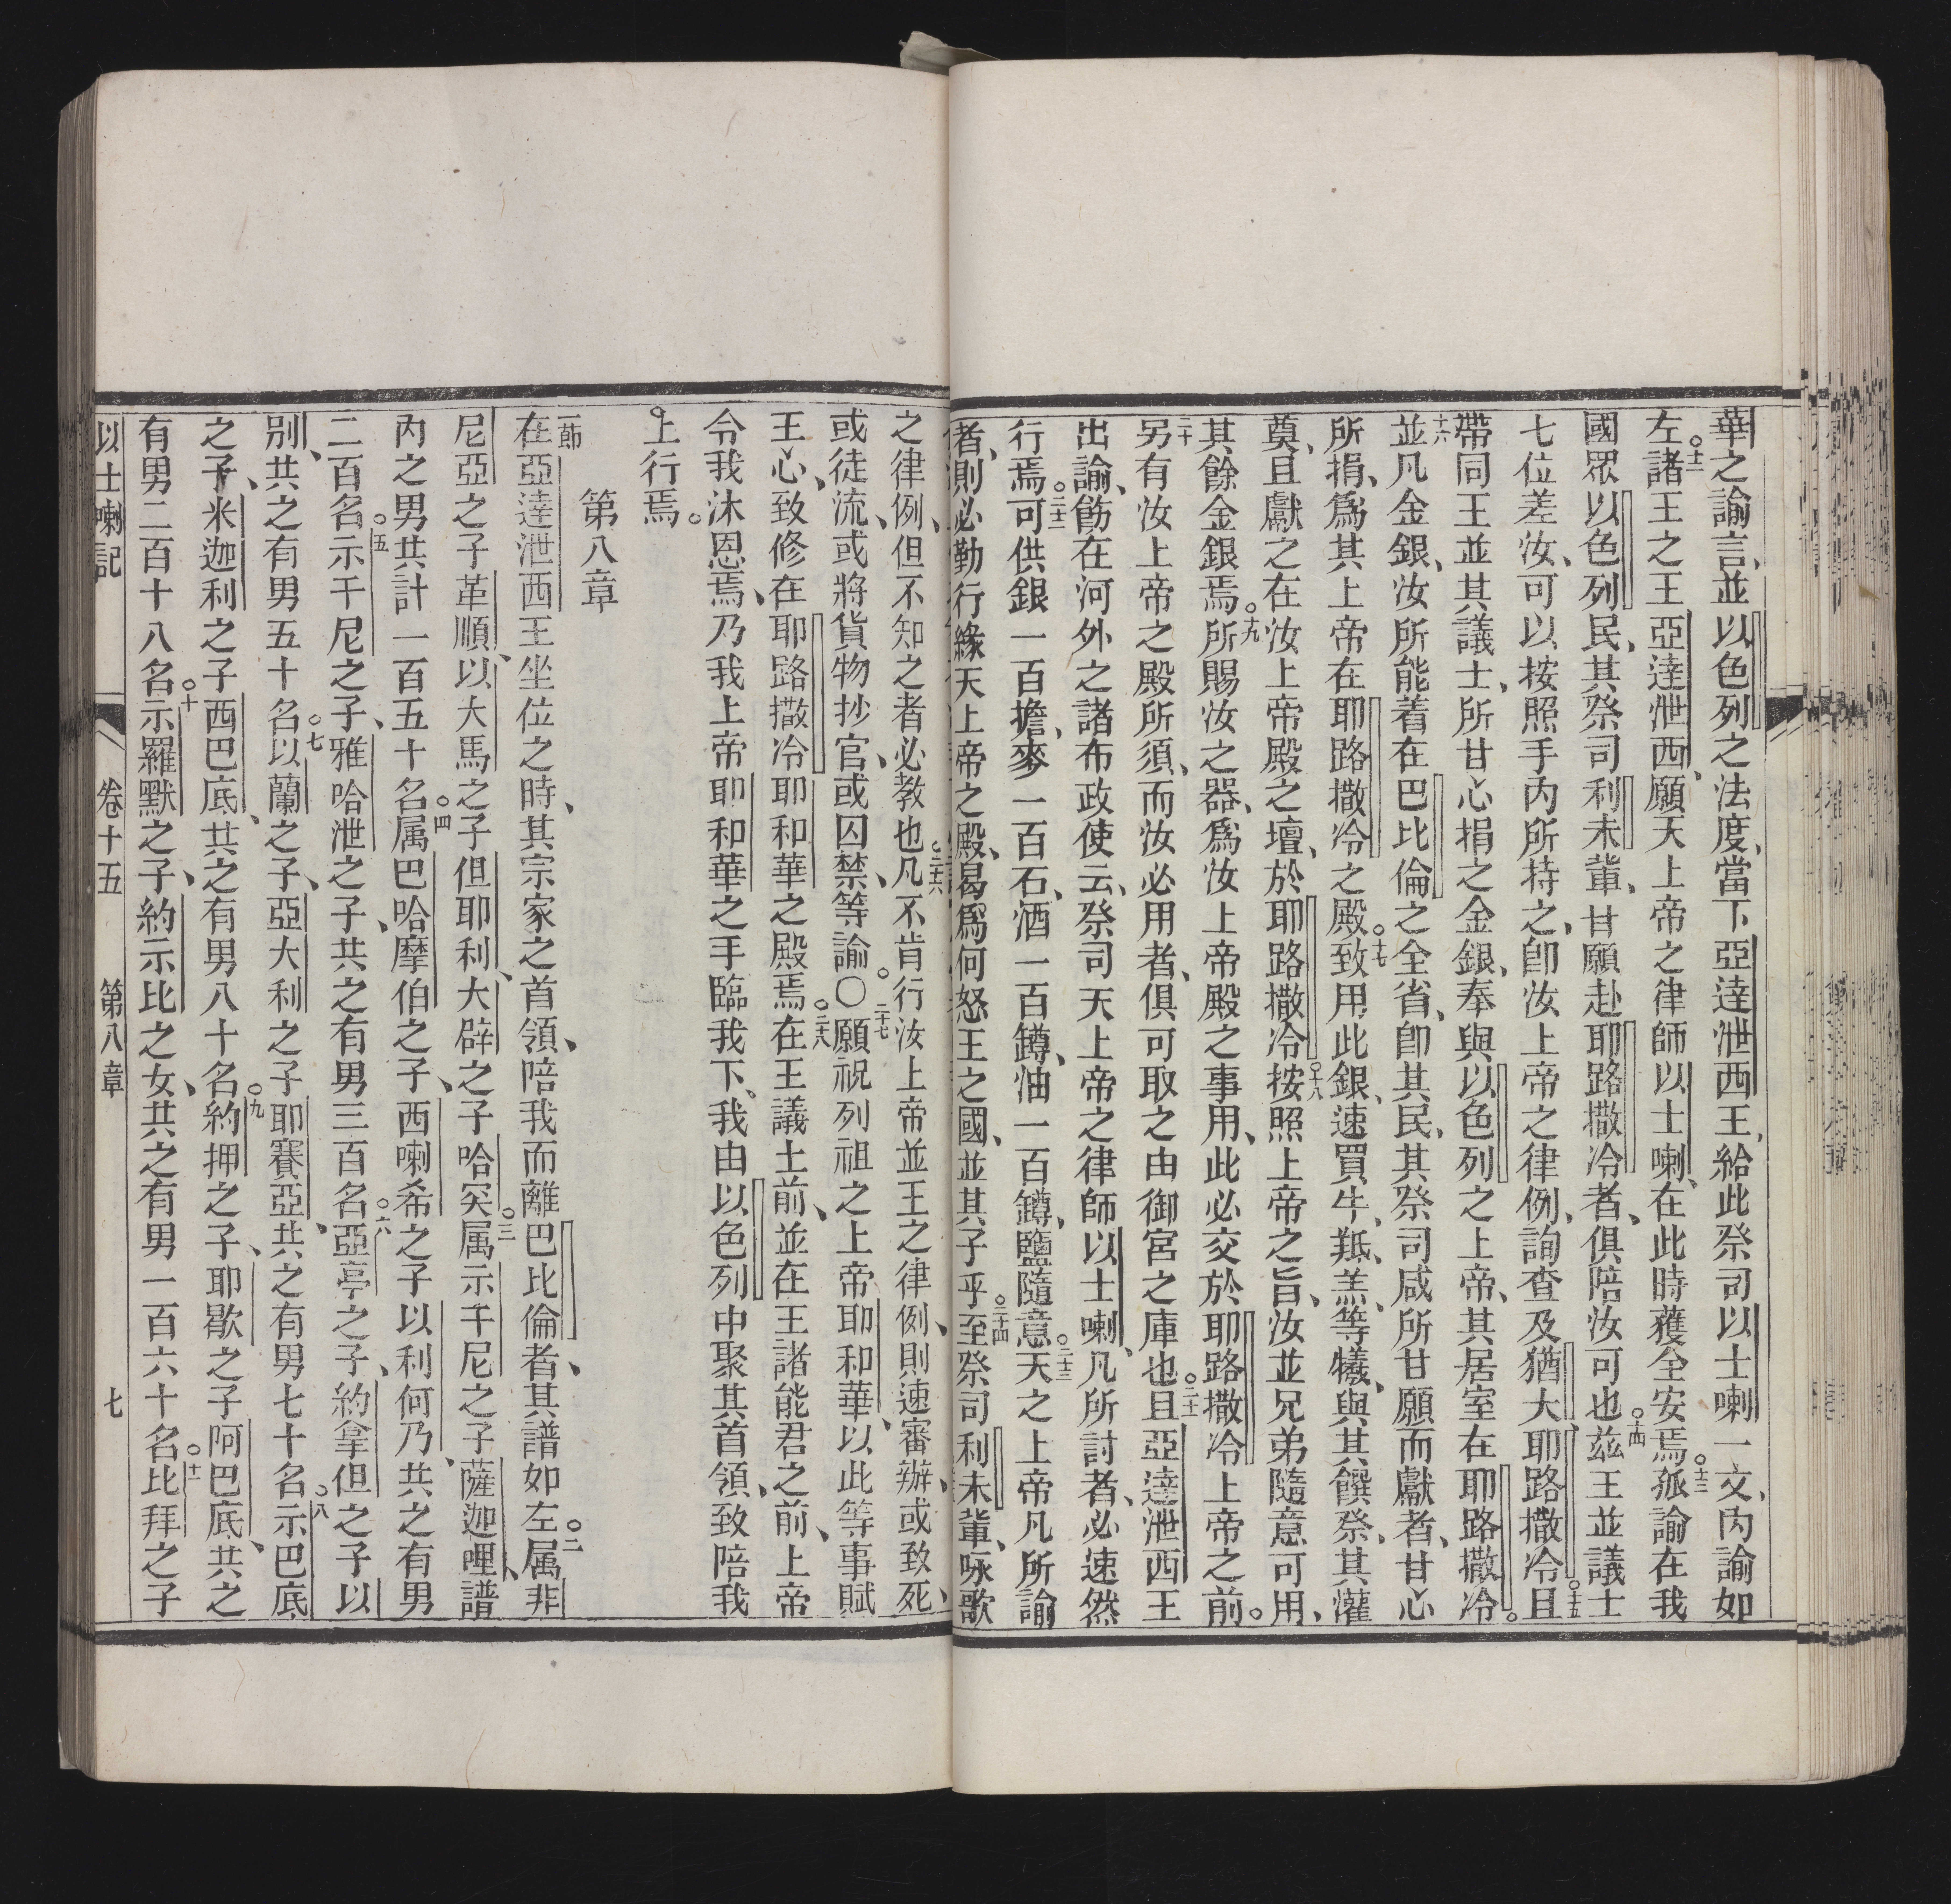 華之諭言、並以色列之法度、當下亞達泄西王、給此祭司以士喇一文、內諭如
左、○十二諸王之王亞達泄西、願天上帝之律師以士喇、在此時獲全安焉○十三孤諭在我
國眾以色列民、其祭司利未輩、甘願赴耶路撒冷者、俱陪汝可也○十四茲王並議士
七位差汝、可以按照手內所持之、卽汝上帝之律例、詢查及猶大、耶路撒冷○十五且
帶同王並其議士、所甘心捐之金銀、奉與以色列之上帝、其居室在耶路撒冷。
十六並凡金銀、汝所能着在巴比倫之全省、卽其民、其祭司咸所甘願而獻者、甘心
所捐、爲其上帝在耶路撒冷之殿○十七致用此銀、速買牛、羝、羔、等犧、與其饌祭、其灌
奠、且獻之在汝上帝殿之壇、於耶路撒冷○十八按照上帝之旨、汝並兄弟隨意可用、
其餘金銀焉○十九所賜汝之器、爲汝上帝殿之事用、此必交於耶路撒冷上帝之前。
二十另有汝上帝之殿所須、而汝必用者、俱可取之由御宮之庫也○二十一且亞達泄西王
出諭、飭在河外之諸布政使云、祭司天上帝之律師以士喇、凡所討者、必速然
行焉○二十二可供銀一百擔、麥一百石、酒一百罇、油一百罇、鹽隨意○二十三天之上帝凡所諭
者、則必勤行緣天上帝之殿、曷爲何怒王之國、並其子乎○二十四至祭司利未輩、咏歌
之律例、但不知之者必教也○二十六凡不肯行汝上帝並王之律例、則速審辦、或致死、
或徒流、或將貨物抄官、或囚禁、等諭○二十七願祝列祖之上帝耶和華、以此等事賦
王心、致修在耶路撒冷耶和華之殿焉○二十八在王議士前、並在王諸能君之前、上帝
令我沐恩焉、乃我上帝耶和華之手臨我下、我由以色列中聚其首領、致陪我
○上行焉。
第八章
一節在亞達泄西王坐位之時、其宗家之首領、陪我而離巴比倫者、其譜如左○二属非
尼亞之子革順、以大馬之子但耶利、大辟之子哈突○三属示千尼之子薩迦哩、譜
內之男共計一百五十名○四属巴哈摩伯之子、西喇希之子以利何乃、共之有男
二百名○五示千尼之子、雅哈泄之子、共之有男三百名○六亞亭之子、約拿但之子以
別、共之有男五十名○七以蘭之子、亞大利之子耶賽亞、共之有男七十名○八示巴底
之子、米迦利之子西巴底、共之有男八十名○九約押之子、耶歇之子阿巴底、共之
有男二百十八名○十示羅默之子、約示比之女、共之有男一百六十名○十一比拜之子
以士喇記 卷十五 第八章 七